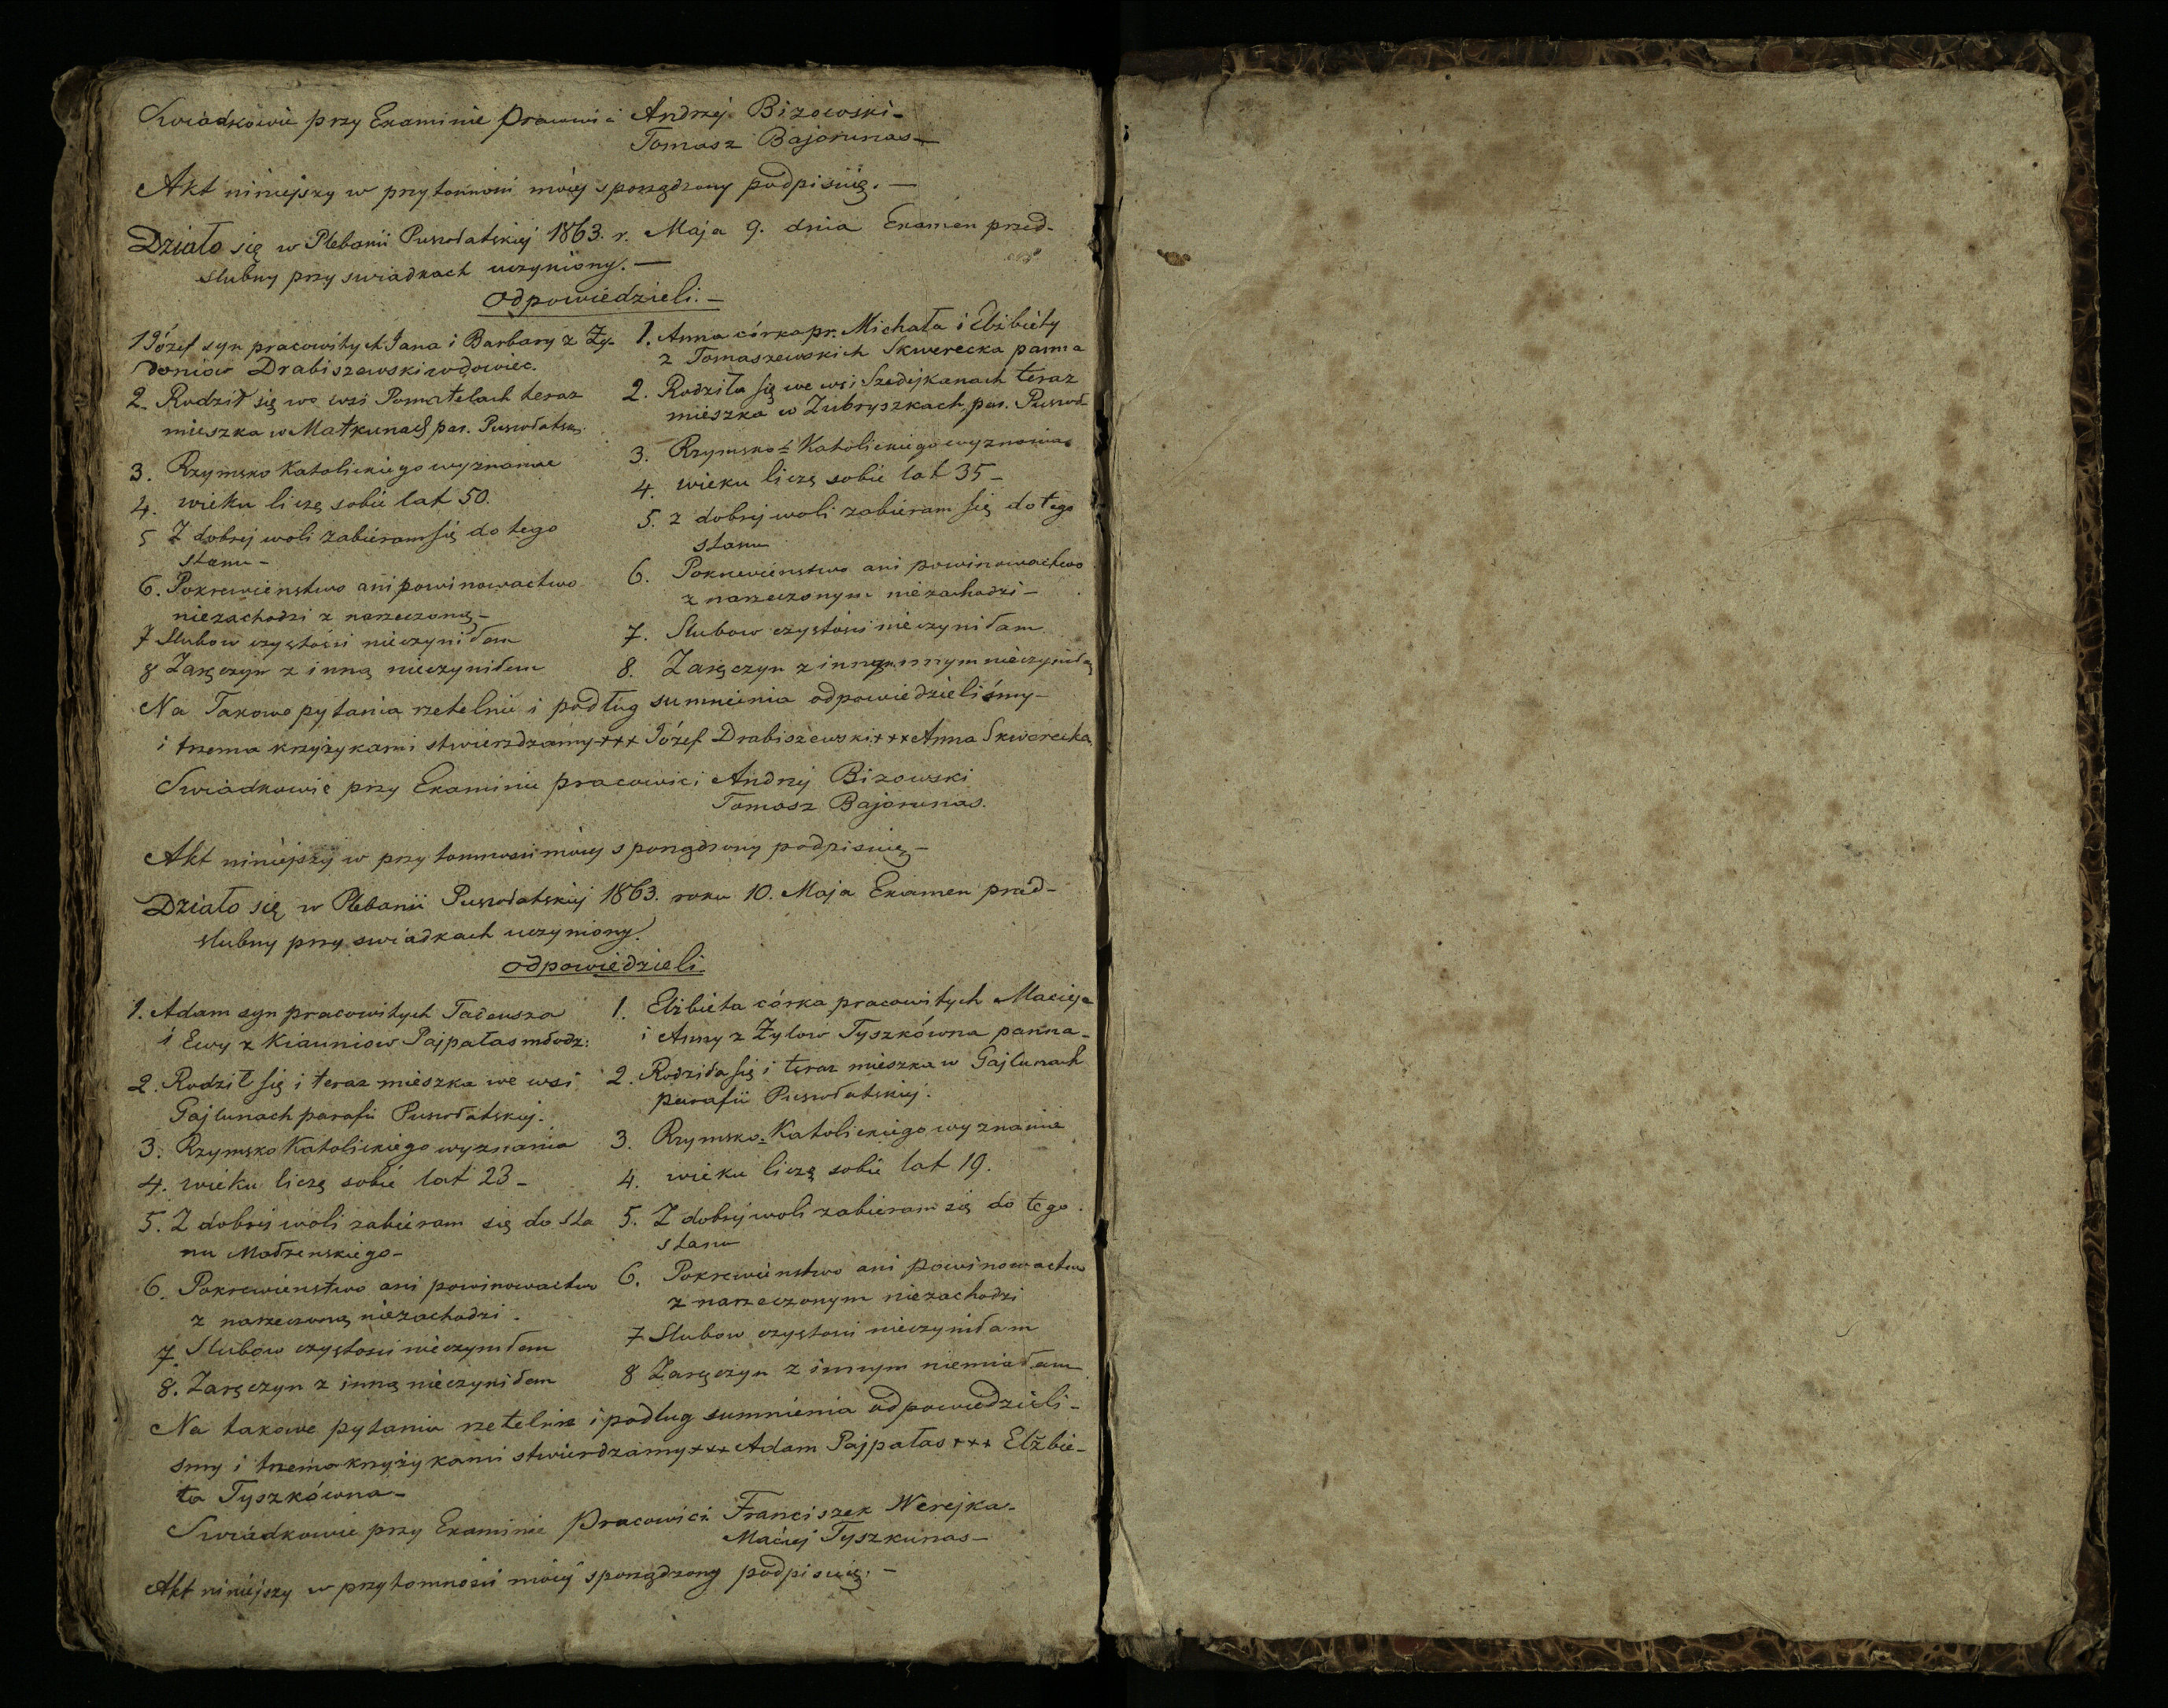 Swiadkowie przy Examinie Pracowici Andrzej Bizowski –
Tomasz Bajorunas –
Akt niniejszy w przytomności mojej sporządzony podpisuię. –
Działo się w Plebanii Puszołatskiej 1863. r. Maja 9. dnia Examen przed-
slubny przy swiadkach uczyniony. –
Odpowiedzieli. –
1 Józef syn pracowitych Jana i Barbary z Ży-
doniow Drabiszewski wdowiec.
2. Rodził się we wsi Pomatelach teraz
mieszka w Matkunach par. Puszołatsk.
3. Rzymsko Katolickiego wyznania
4. wieku liczę sobie lat 50.
5 Z dobrej woli zabieram się do tego
stanu –
6. Pokrewieństwo ani powinowactwo
niezachodzi z narzeczoną –
7 Slubow czystości nieczyniłem
8 Zaręczyn z inną nieczyniłem
1. Anna córka pr. Michała i Elżbiety
z Tomaszewskich Skwerecka panna
2. Rodziła się we wsi Szedejkanach teraz
mieszka w Zubryszkach par. Puszoł-
3. Rzymsko = Katolickiego wyznania
4. wieku liczę sobie lat 35 –
5. z dobrej woli zabieram się do tego
stanu
6. Pokrewieństwo ani powinowactwo
z narzeczonym niezachodzi –
7. Slubow czystości nieczyniłam
8. Zaręczyn z innym nieczyniłam
Na Takowe pytania rzetelnie i podług sumnienia odpowiedzieliśmy –
i trzema krzyżykami stwierdzamy +++ Józef Drabiszewski +++ Anna Skwerecka
Swiadkowie przy Examinie pracowici Andrzej Bizowski
Tomasz Bajorunas.
Akt niniejszy w przytomności mojej sporządzony podpisuię –
Działo się w Plebanii Puszołatskiej 1863. roku 10. Maja Examen przed-
slubny przy swiadkach uczyniony.
Odpowiedzieli.
1. Adam syn pracowitych Tadeusza
i Ewy z Kiauniow Pajpałas młodz:
2. Rodził się i teraz mieszka we wsi
Gajlunach parafii Puszołatskiej.
3. Rzymsko Katolickiego wyznania
4. wieku liczę sobie lat 23 –
5. Z dobrej woli zabieram się do sta
nu Małżenskiego –
6. Pokrewieństwo ani powinowactwo
z narzeczoną niezachodzi.
7. Slubów czystości nieczyniłem
8. Zaręczyn z inną nieczyniłem
1. Elżbieta córka pracowitych Macieja
i Anny z Żylow Tyszkówna panna –
2. Rodziła się i teraz mieszka w Gajlunach
parafii Puszołatskiej.
3. Rzymsko = Katolickiego wyznania
4. wieku liczę sobie lat 19.
5. Z dobrej woli zabieram się do tego
stanu
6. Pokrewieństwo ani powinowactwo
z narzeczonym niezachodzi
7 Slubow czystości nieczyniłam
8 Zaręczyn z innym niemiałam
Na takowe pytania rzetelnie i podlug sumnienia odpowiedzieli-
smy i trzema krzyżykami stwierdzamy +++ Adam Pajpałas +++ Elżbie-
ta Tyszkówna –
Swiadkowie przy Examinie Pracowici Franciszek Werejka –
Maciej Tyszkunas –
Akt niniejszy w przytomności mojej sporządzony podpisuię. –